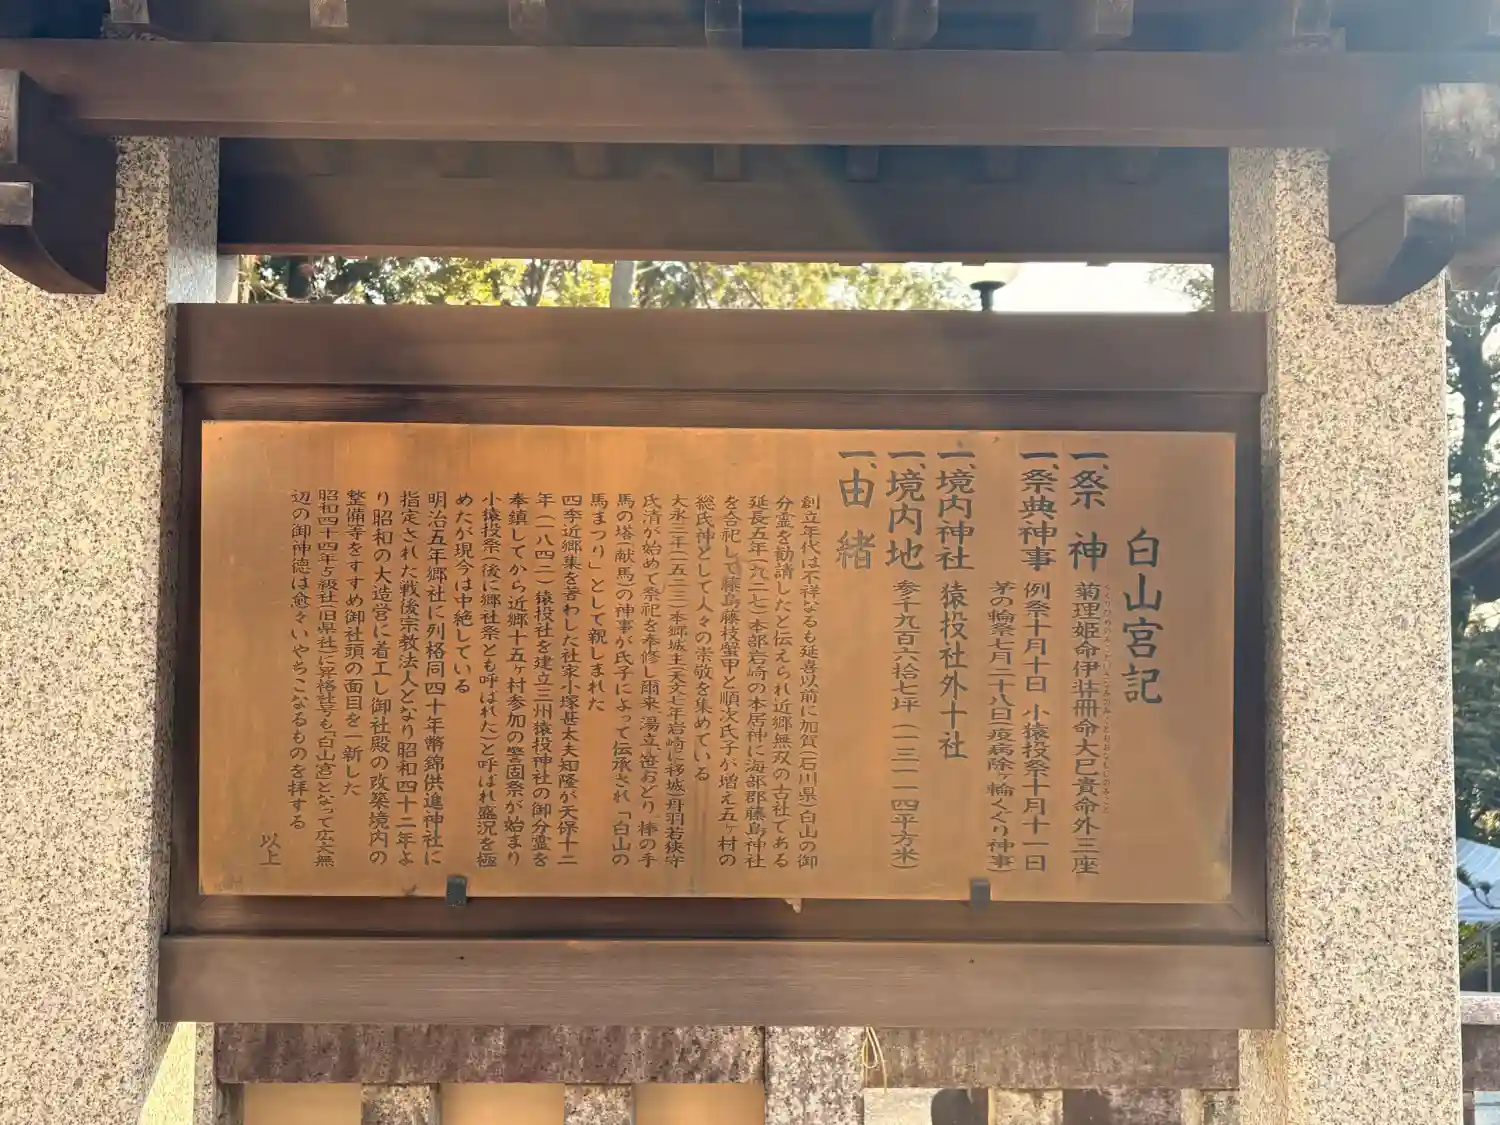 白山宮記
一、祭神 菊理姫命伊弉冊命大巳貴命外三座
くくりひめのみこといざなみのみことおおなむちのみこと
一、祭典神事 例祭十月十日 小猿投祭十月十一日
茅の輪祭七月二十八日(疫病除ヶ輪くぐり神事)
一、境内神社 猿投社外十社
一、境内地 参千九百六拾七坪(一三一一四平方米)
一、由緒
創立年代は不祥なるも延喜以前に加賀(石川県)白山の御
分霊を勧請したと伝えられ近郷無双の古社である
延長五年(九二七)本部岩崎の本居神に海部郡藤島神社
を合祀して藤島藤枝蟹甲と順次氏子が増え五ヶ村の
総氏神として人々の崇敬を集めている
大永三年(一五二三)本郷城主(天文七年岩崎に移城)丹羽若狭守
氏清が始めて祭祀を奉修し爾来湯立笹おどり、棒の手
馬の塔(献馬)の神事が氏子によって伝承され「白山の
馬まつり」として親しまれた
四季近郷集を著わした社家小塚甚太夫知隆が天保十二
年(一八四二)猿投社を建立三州猿投神社の御分霊を
奉鎮してから近郷十五ヶ村参加の警固祭が始まり
小猿投祭(後に郷社祭とも呼ばれた)と呼ばれ盛況を極
めたが現今は中絶している
明治五年郷社に列格同四十年幣錦供進神社に
指定された戦後宗教法人となり昭和四十二年よ
り昭和の大造営に着工し御社殿の改築境内の
整備等をすすめ御社頭の面目を一新した
昭和四十四年五級社(旧県社)に昇格社号も「白山宮」となって広大無
辺の御神徳は愈々いやちこなるものを拝する
以上